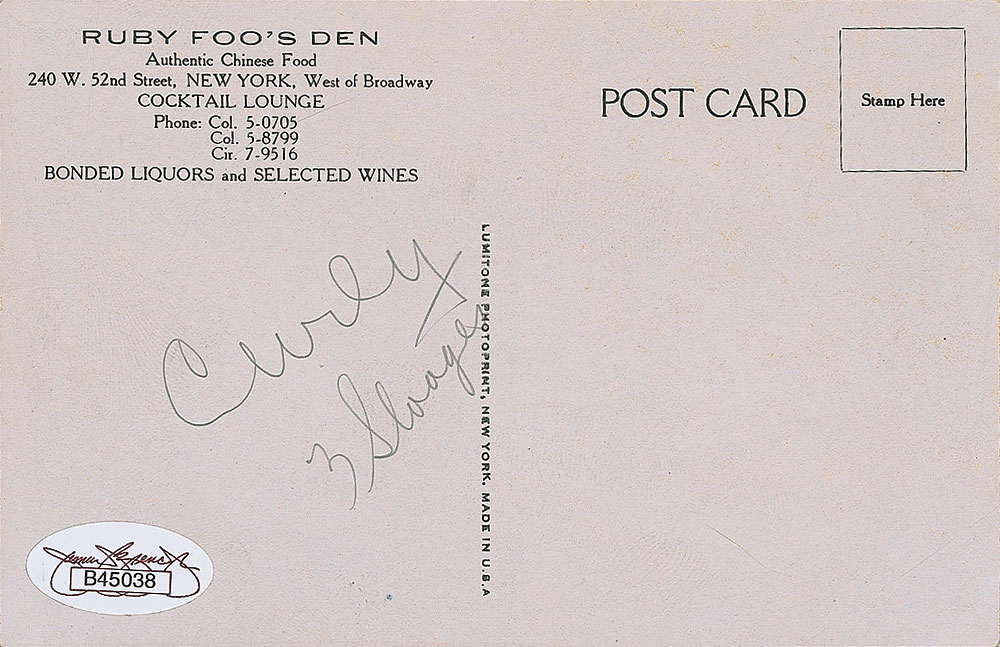 RUBY FOO'S DEN
Authentic Chinese Food
240 W. 52nd Street, NEW YORK, West of Broadway
COCKTAIL LOUNGE
Phone: Col. 5-0705
Col. 5-8799
Cir. 7-9516
BONDED LIQUORS and SELECTED WINES
POST CARD
Stamp Here
Curly
3 Stooges
LUMITONE PHOTOPRINT, NEW YORK. MADE IN U.S.A
B45038